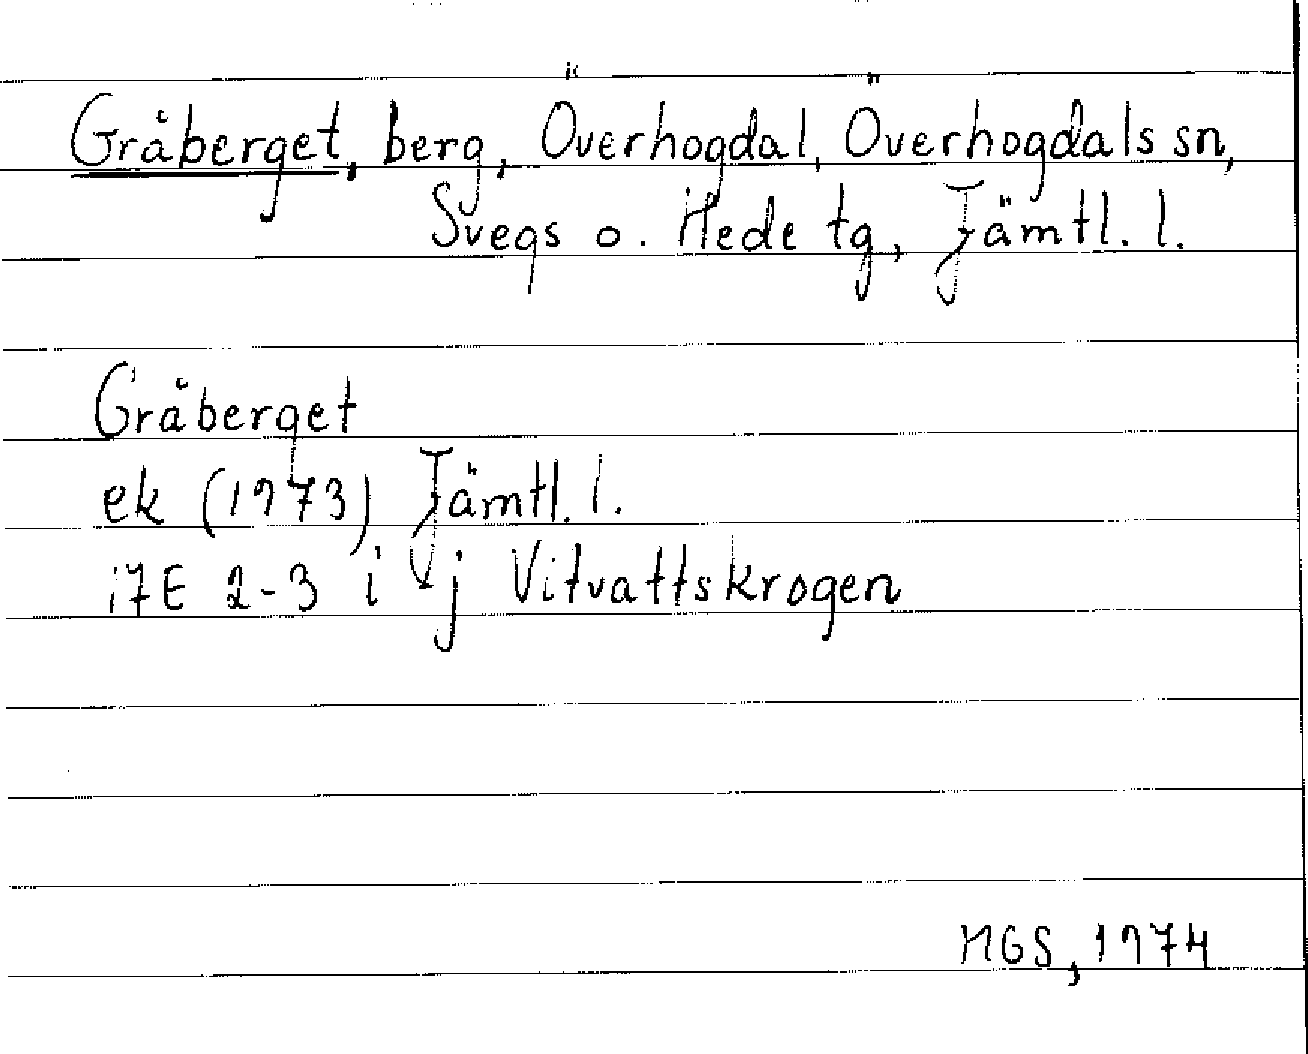 Gråberget, berg, Överhogdal, Överhogdals sn,
Svegs o. Hede tg, Jämtl. l.
Gråberget
ek (1973) Jämtl. l.
17E 2-3 i j Vitvattskrogen
MGS, 1974